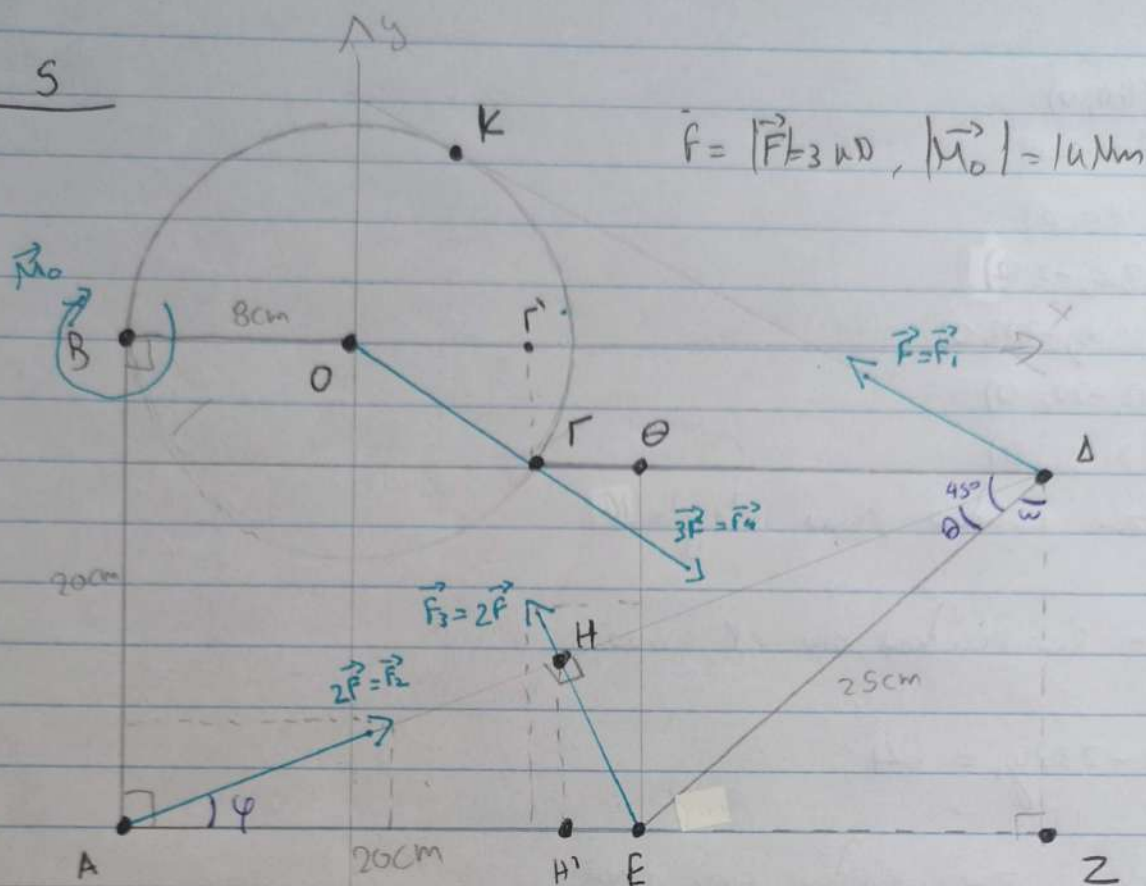 y
S
K
F = |F⃗|=3 kN, |M⃗₀| = 1kNm
M⃗₀
B
8cm
Γ'
x
O
F⃗=F⃗₁
Γ
Θ
Δ
45°
θ
ω
3F⃗=F⃗₄
20cm
F⃗₃=2F⃗
H
2F⃗=F⃗₂
25cm
φ
A
20cm
H'
E
Z